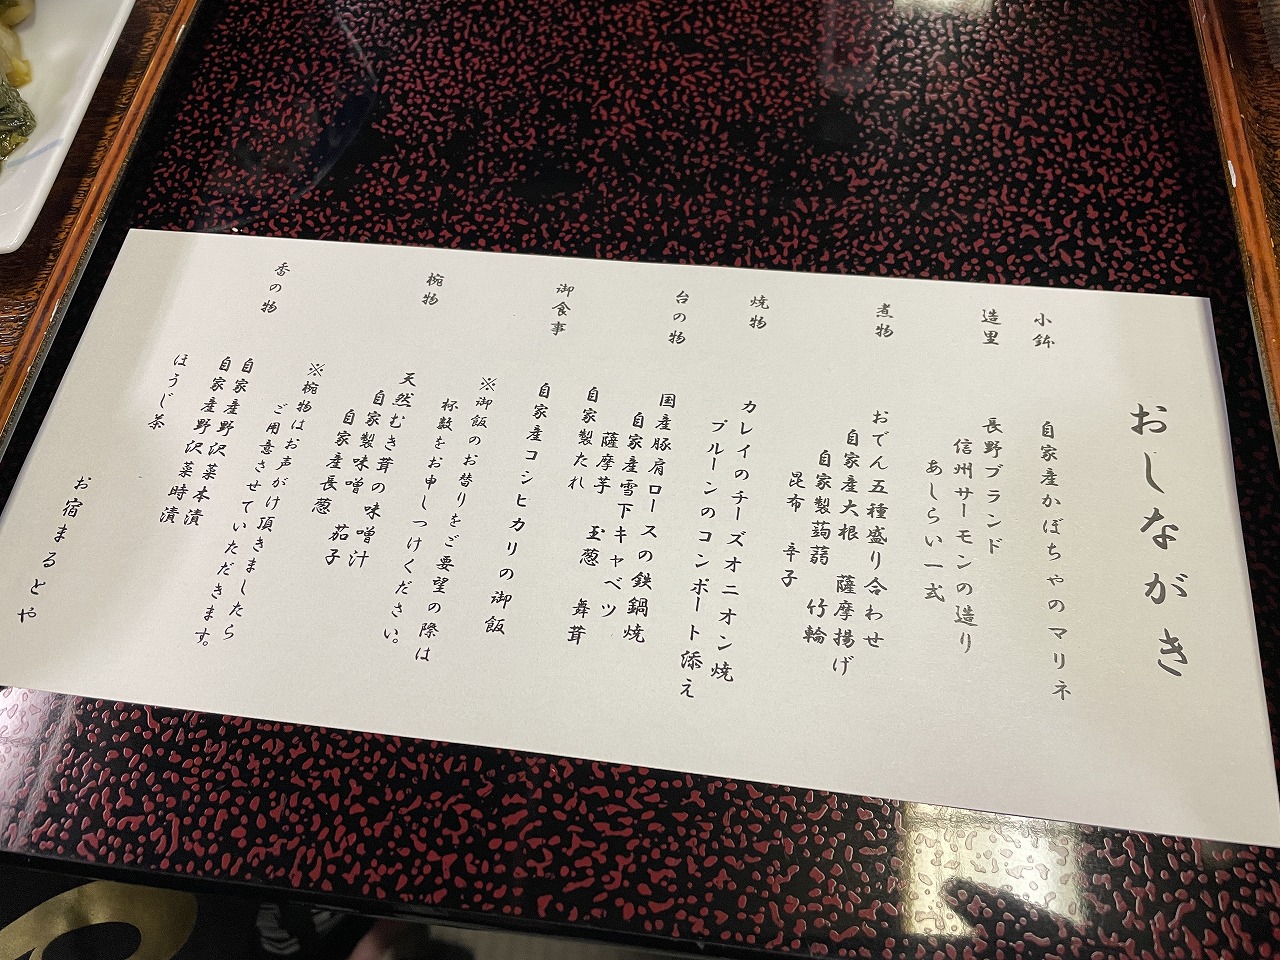 おしながき
小鉢
自家産かぼちゃのマリネ
造里
長野ブランド
信州サーモンの造り
あしらい一式
煮物
おでん五種盛り合わせ
自家産大根 薩摩揚げ
自家製蒟蒻 竹輪
昆布 辛子
焼物
カレイのチーズオニオン焼
プルーンのコンポート添え
台の物
国産豚肩ロースの鉄鍋焼
自家産雪下キャベツ
薩摩芋 玉葱 舞茸
自家製たれ
御食事
自家産コシヒカリの御飯
※御飯のお替りをご要望の際は
杯数をお申しつけください。
椀物
天然むき茸の味噌汁
自家製味噌 茄子
自家産長葱
※椀物はお声がけ頂きましたら
ご用意させていただきます。
香の物
自家産野沢菜本漬
自家産野沢菜時漬
ほうじ茶
お宿まるとや